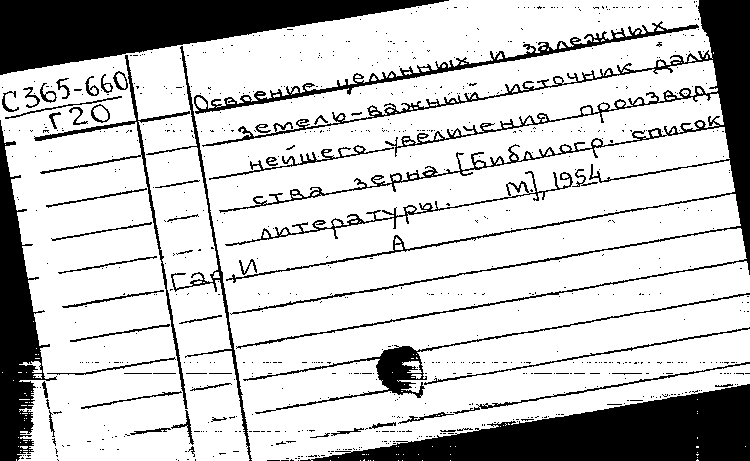 С365-660
Г20
Освоение целинных и залежных
земель-важный источник даль
нейшего увеличения производ-
ства зерна. [Библиогр. список
литературы. М.], 1954.
Гар, И А